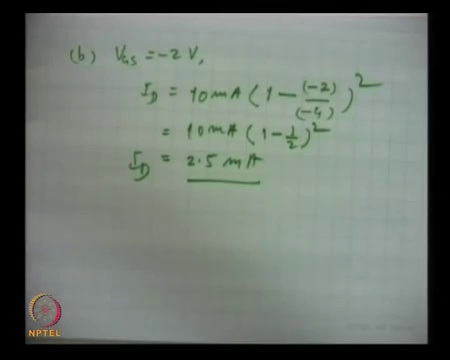 (b) V_GS = -2 V,
I_D = 10 mA (1 - (-2)/(-4))^2
= 10 mA (1 - 1/2)^2
I_D = 2.5 mA
NPTEL